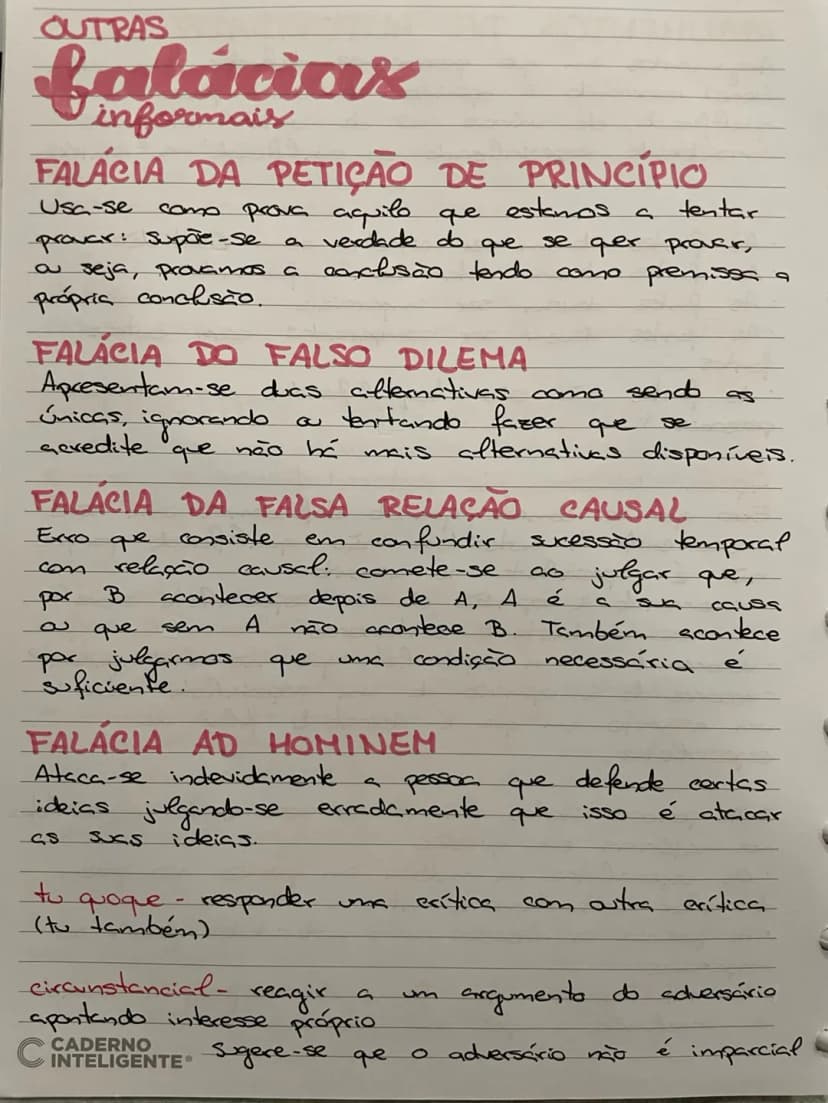 OUTRAS
falácias
informais
FALÁCIA DA PETIÇÃO DE PRINCÍPIO
Usa-se como prova aquilo que estamos a tentar
provar: supõe-se a verdade do que se quer provar,
ou seja, provamos a conclusão tendo como premissa a
própria conclusão.
FALÁCIA DO FALSO DILEMA
Apresentam-se duas alternativas como sendo as
únicas, ignorando ou tentando fazer que se
acredite que não há mais alternativas disponíveis.
FALÁCIA DA FALSA RELAÇÃO CAUSAL
Erro que consiste em confundir sucessão temporal
com relação causal: comete-se ao julgar que,
por B acontecer depois de A, A é a sua causa
ou que sem A não acontece B. Também acontece
por julgarmos que uma condição necessária é
suficiente.
FALÁCIA AD HOMINEM
Ataca-se indevidamente a pessoa que defende certas
ideias julgando-se erradamente que isso é atacar
as suas ideias.
tu quoque - responder uma crítica com outra crítica
(tu também)
circunstancial - reagir a um argumento do adversário
apontando interesse próprio
Sugere-se que o adversário não é imparcial
CADERNO
INTELIGENTE®